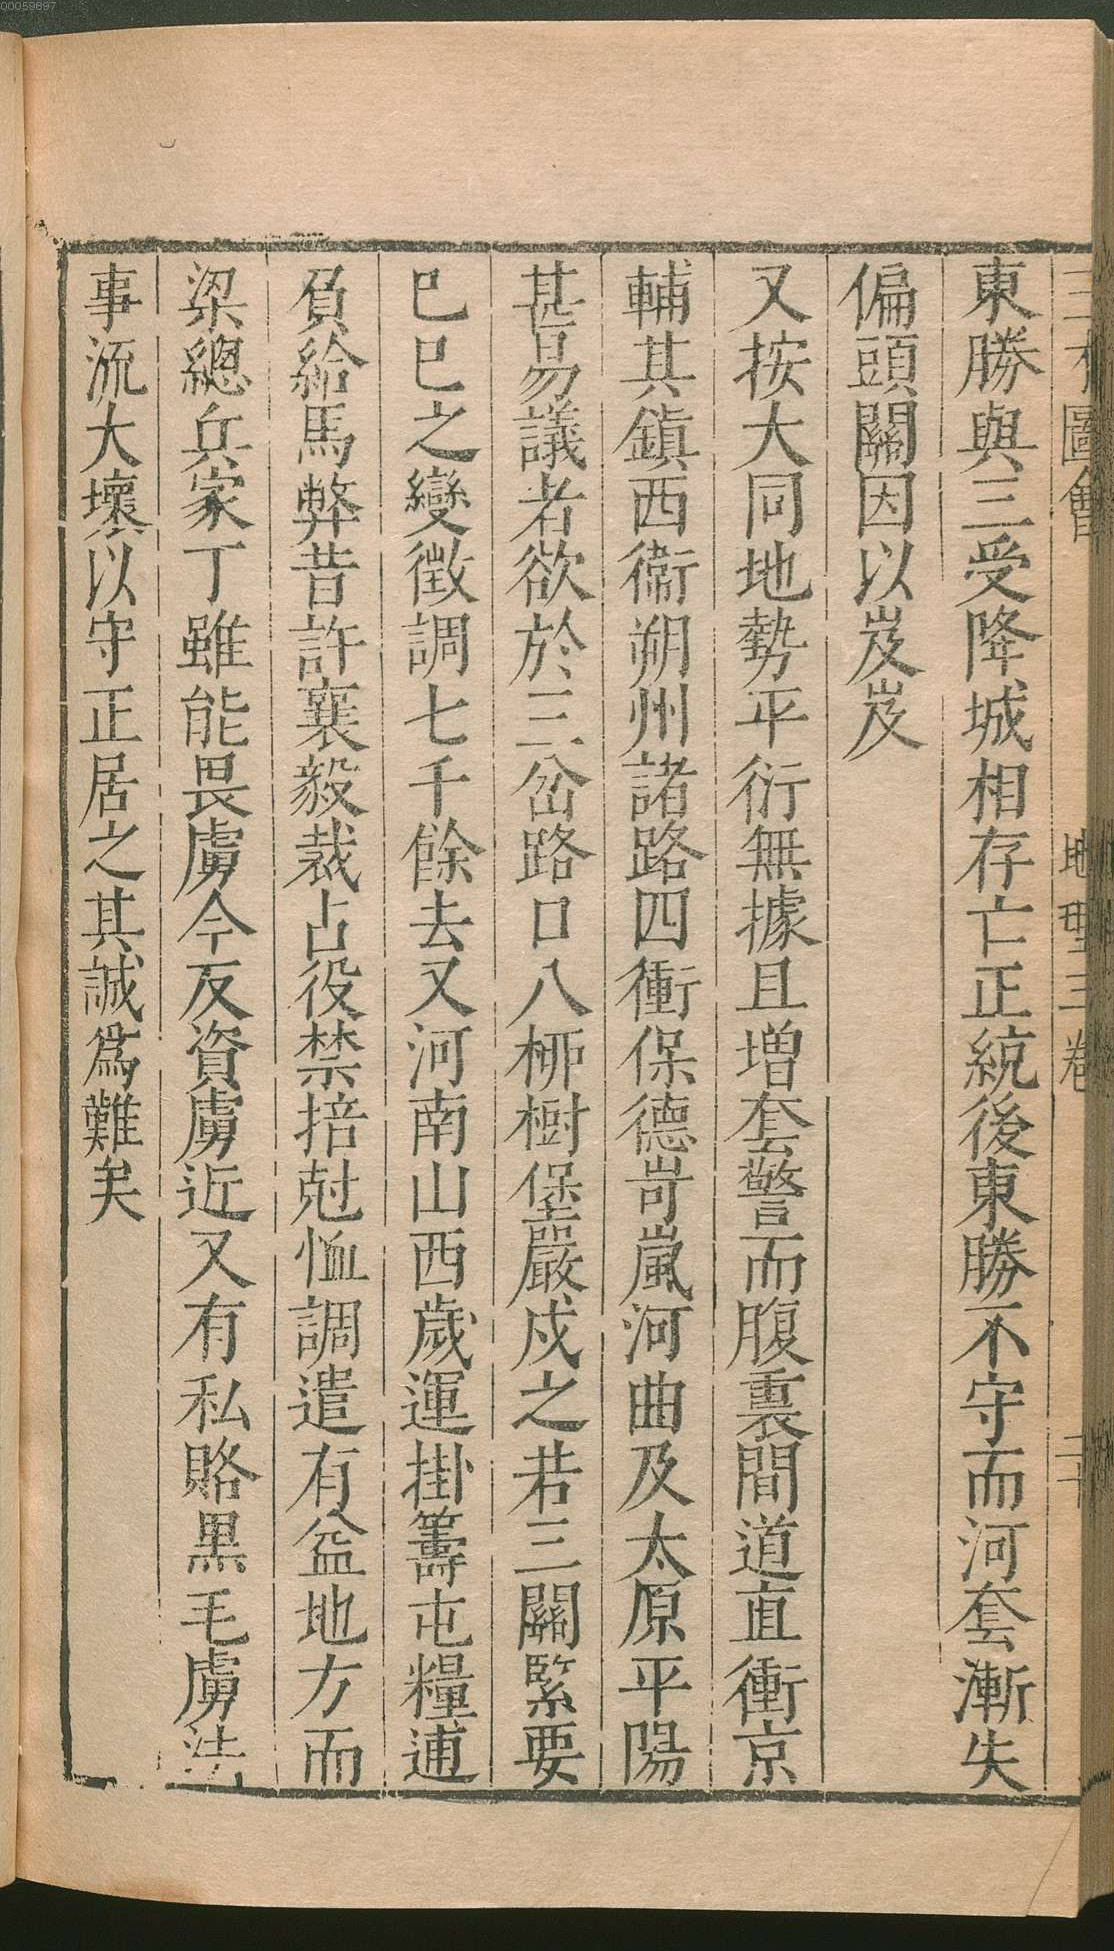 三才圖會 地理三卷
東勝與三受降城相存亡正統後東勝不守而河套漸失
偏頭關因以岌岌
又按大同地勢平衍無據且增套警而腹裏間道直衝京
輔其鎮西衛朔州諸路四衝保德岢嵐河曲及太原平陽
甚易議者欲於三岔路口八栁樹堡嚴戍之若三關緊要
已巳之變徵調七千餘去又河南山西歲運掛籌屯糧逋
負給馬弊昔許襄毅裁占役禁掊尅恤調遣有益地方而
梁總兵家丁雖能畏虜今反資虜近又有私賂黑毛虜法
事流大壞以守正居之其誠爲難矣
00059897